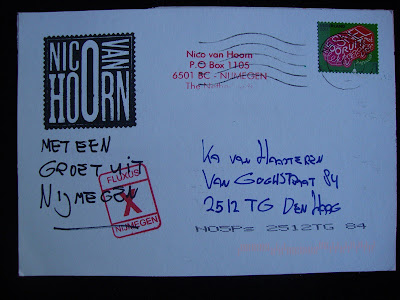 NICO
VAN
HOORN
Nico van Hoorn
P.O Box 1105
6501 BC - NIJMEGEN
The
MET EEN
GROET UIT
NIJMEGEN
FLUXUS
X
NIJMEGEN
KA VAN HAASTEREN
VAN GOGHSTRAAT 84
2512 TG DEN HAAG
NOSP= 2512TG 84